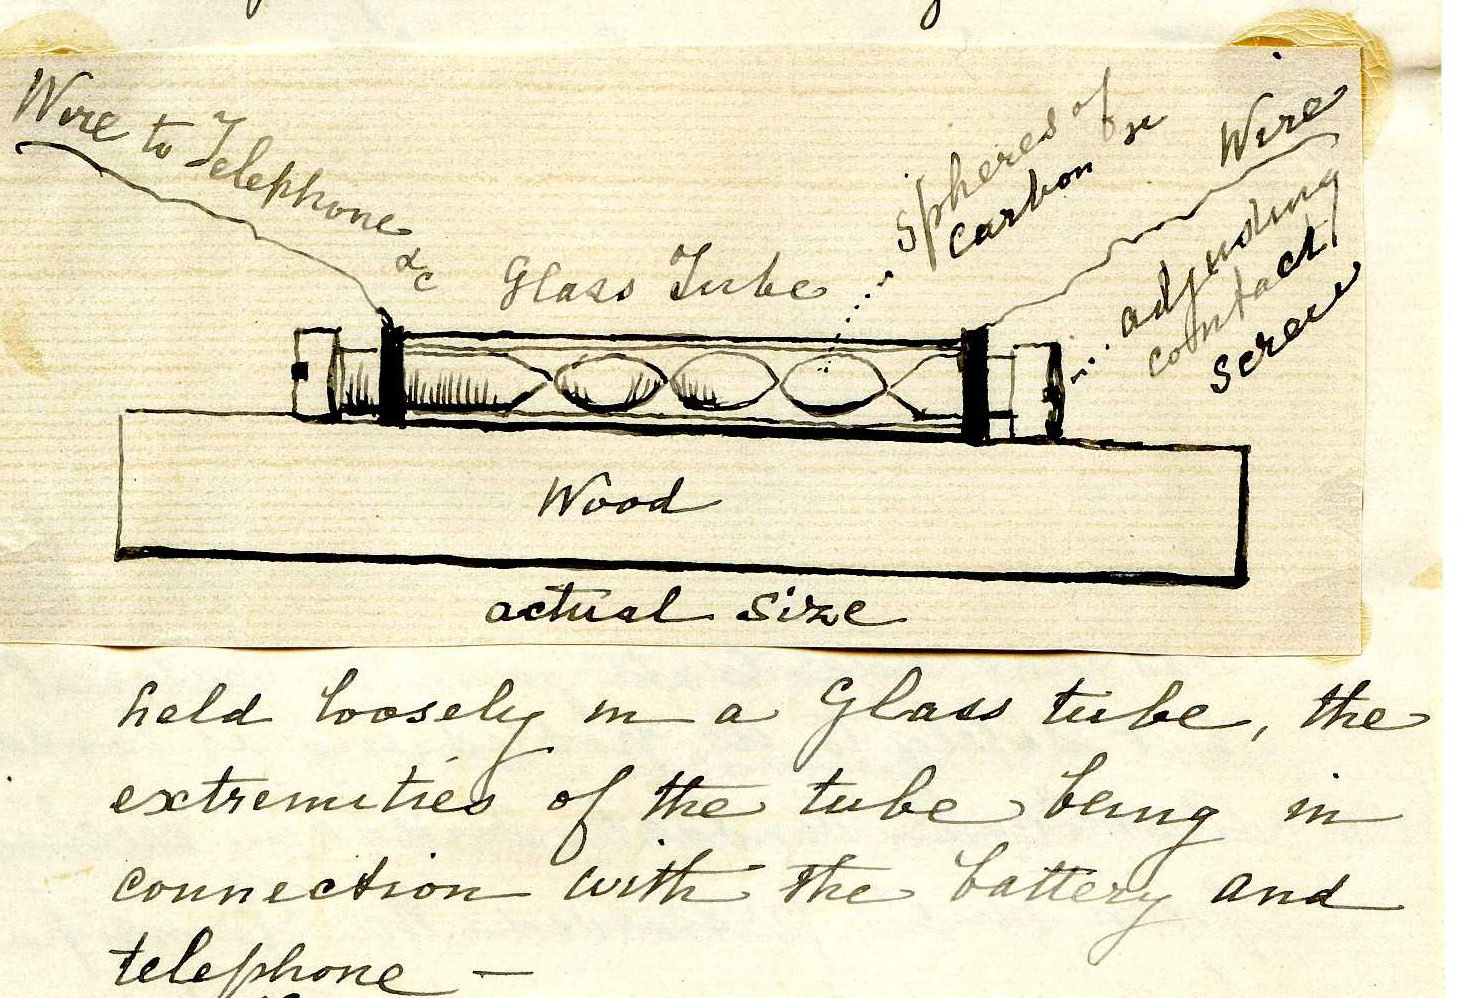 Wire to Telephone
&c
Glass Tube
Spheres of
carbon &c
Wire
adjusting
contact
screw
Wood
actual size
held loosely in a Glass tube, the
extremities of the tube being in
connection with the battery and
telephone —